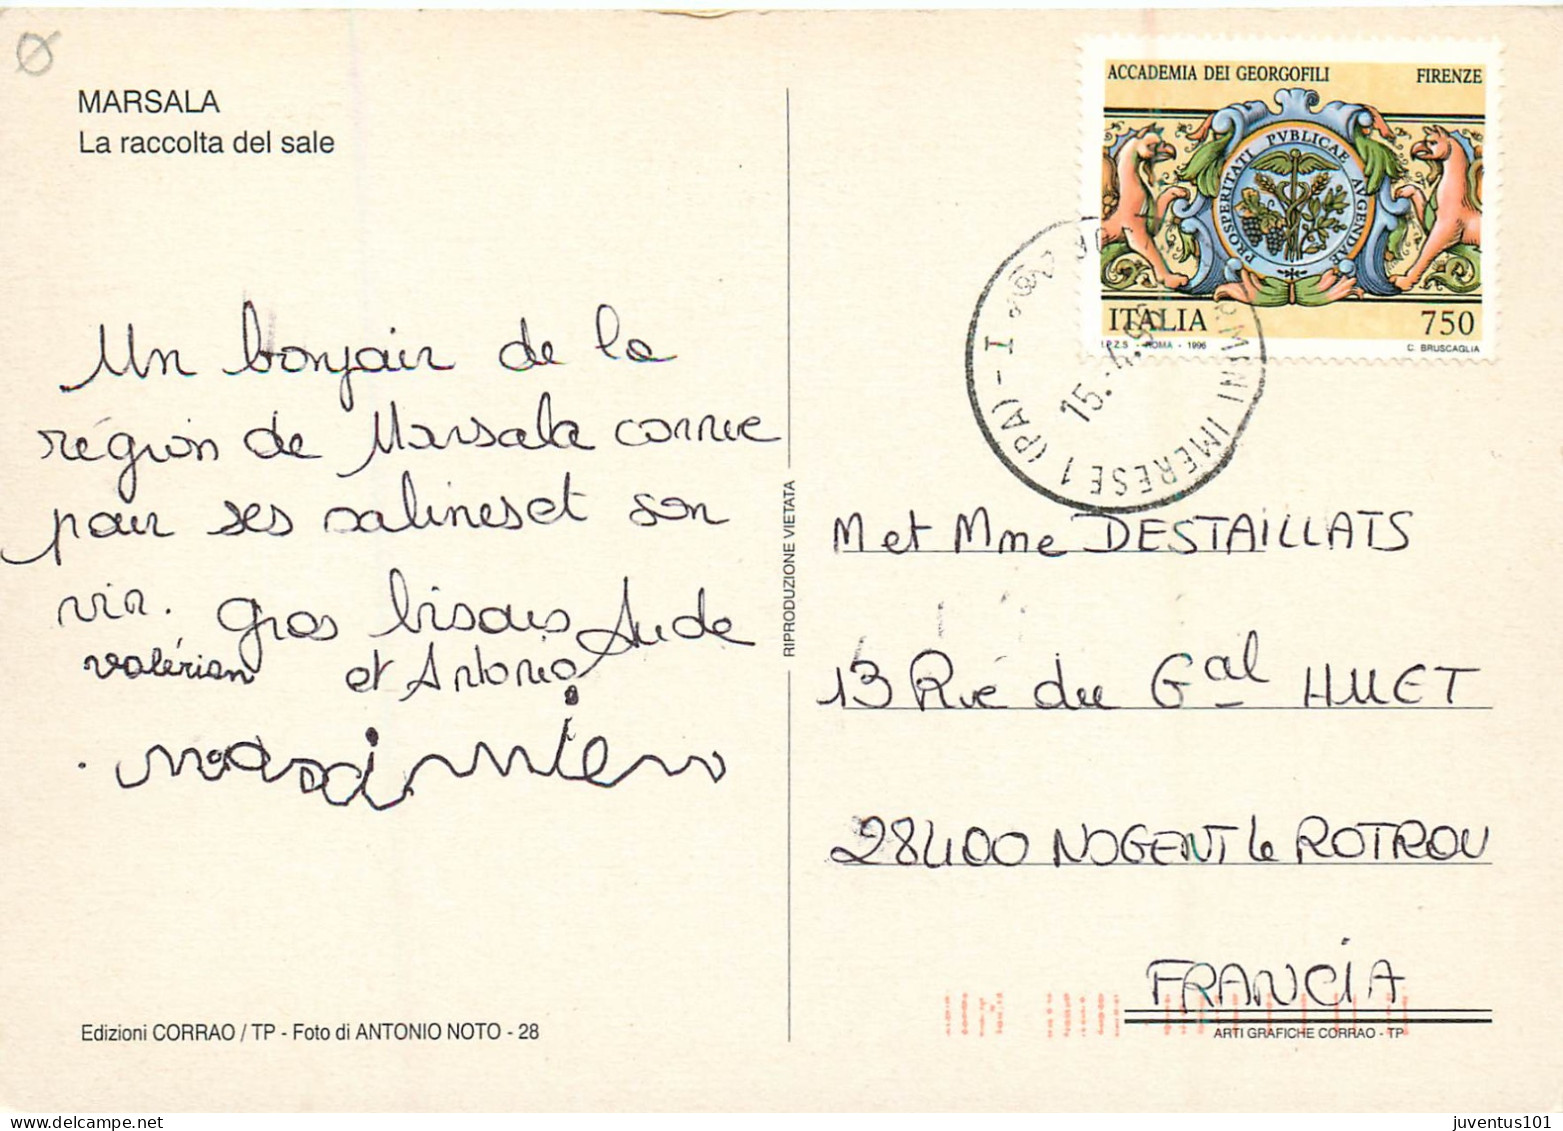 MARSALA
La raccolta del sale
Un bonjour de la
région de Marsala connue
pour ses salines et son
vin. Gros bisous Aude
Valérian et Antonio
maximilien
Edizioni CORRAO / TP - Foto di ANTONIO NOTO - 28
RIPRODUZIONE VIETATA
ACCADEMIA DEI GEORGOFILI FIRENZE
PROSPERITATI PVBLICAE AVGENDAE
ITALIA 750
I.P.Z.S. - ROMA - 1996 C. BRUSCAGLIA
IMERESE 1 (PA) - I
15.
M et Mme DESTAILLATS
13 Rue du Gal HUET
28400 NOGENT le ROTROU
FRANCIA
ARTI GRAFICHE CORRAO - TP
juventus101